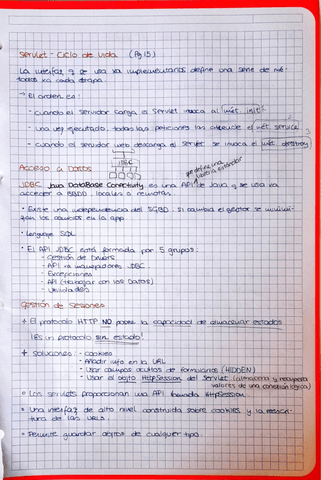 Servlet - Ciclo de Vida (Pg 15)
La interfaz q se usa xa implementarlos define una serie de mé-
todos xa cada etapa.
→ El orden es:
- cuando el servidor carga el servlet invoca al mét. init
- una vez ejecutado, todas las peticiones las atiende el mét service
- cuando el servidor web descarga el servlet se invoca el mét. destroy
JDBC
Acceso a Datos
JDBC Java DataBase Conectivity es una API de Java q se usa xa
acceder a BBDD locales o remotas.
· Existe una independencia del SGBD. Si cambia el gestor se minimi-
zan los cambios en la app
· Lenguaje SQL
· El API JDBC está formada por 5 grupos:
- Gestión de Drivers
- API xa manejadores JDBC
- Excepciones
- API (trabajar con los datos)
- Utilidades
Gestión de Sesiones
+ El protocolo HTTP NO posee la capacidad de almacenar estados
¡Es un protocolo sin estado!
+ Soluciones: - cookies
- Añadir info en la URL
- Usar campos ocultos de formularios (HIDDEN)
- Usar el objeto HttpSession del Servlet (almacena y recupera
valores de una conexión lógica)
· Los servlets proporcionan una API llamada HttpSession
· Una interfaz de alto nivel construida sobre cookies y la reescri-
tura de las URLs.
· Permite guardar objetos de cualquier tipo.